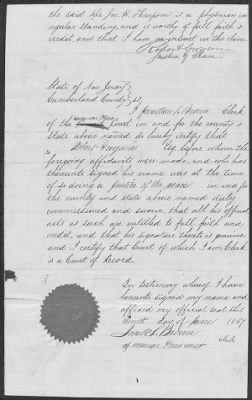 the said Dr Jos. H. Thompson is a physician in
regular standing, and is worthy of full faith &
credit, and that I have no interest in the claim.
Justice of Peace
State of New Jersey
Cumberland County ss
I Hamilton Clerk
of the Court in and for the county &
state above named do hereby certify that
Esq before whom the
foregoing affidavits were made, and who has
thereunto signed his name was at the time
of so doing a Justice of the peace in and for
the county and state above named duly
commissioned and sworn, that all his official
acts as such are entitled to full faith and
credit, and that his signature thereto is genuine,
and I certify that Court of which I am Clerk
is a Court of Record.
In testimony whereof I have
hereunto signed my name and
affixed my official seal this
day of June 1867
clerk
of Court